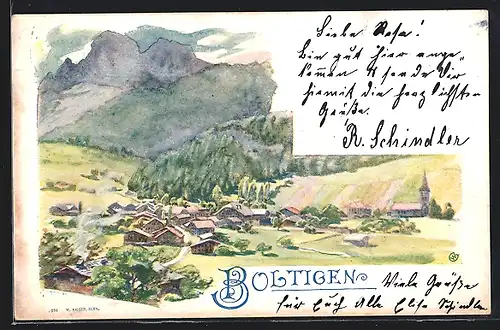 Liebe Rosa!
Bin gut hier ange„
kommen & sende Dir
hiemit die herzlichsten
Grüße.
R. Schindler
BOLTIGEN
Viele Grüße
für Euch Alle Elise Schindler
W. KAISER, BERN.